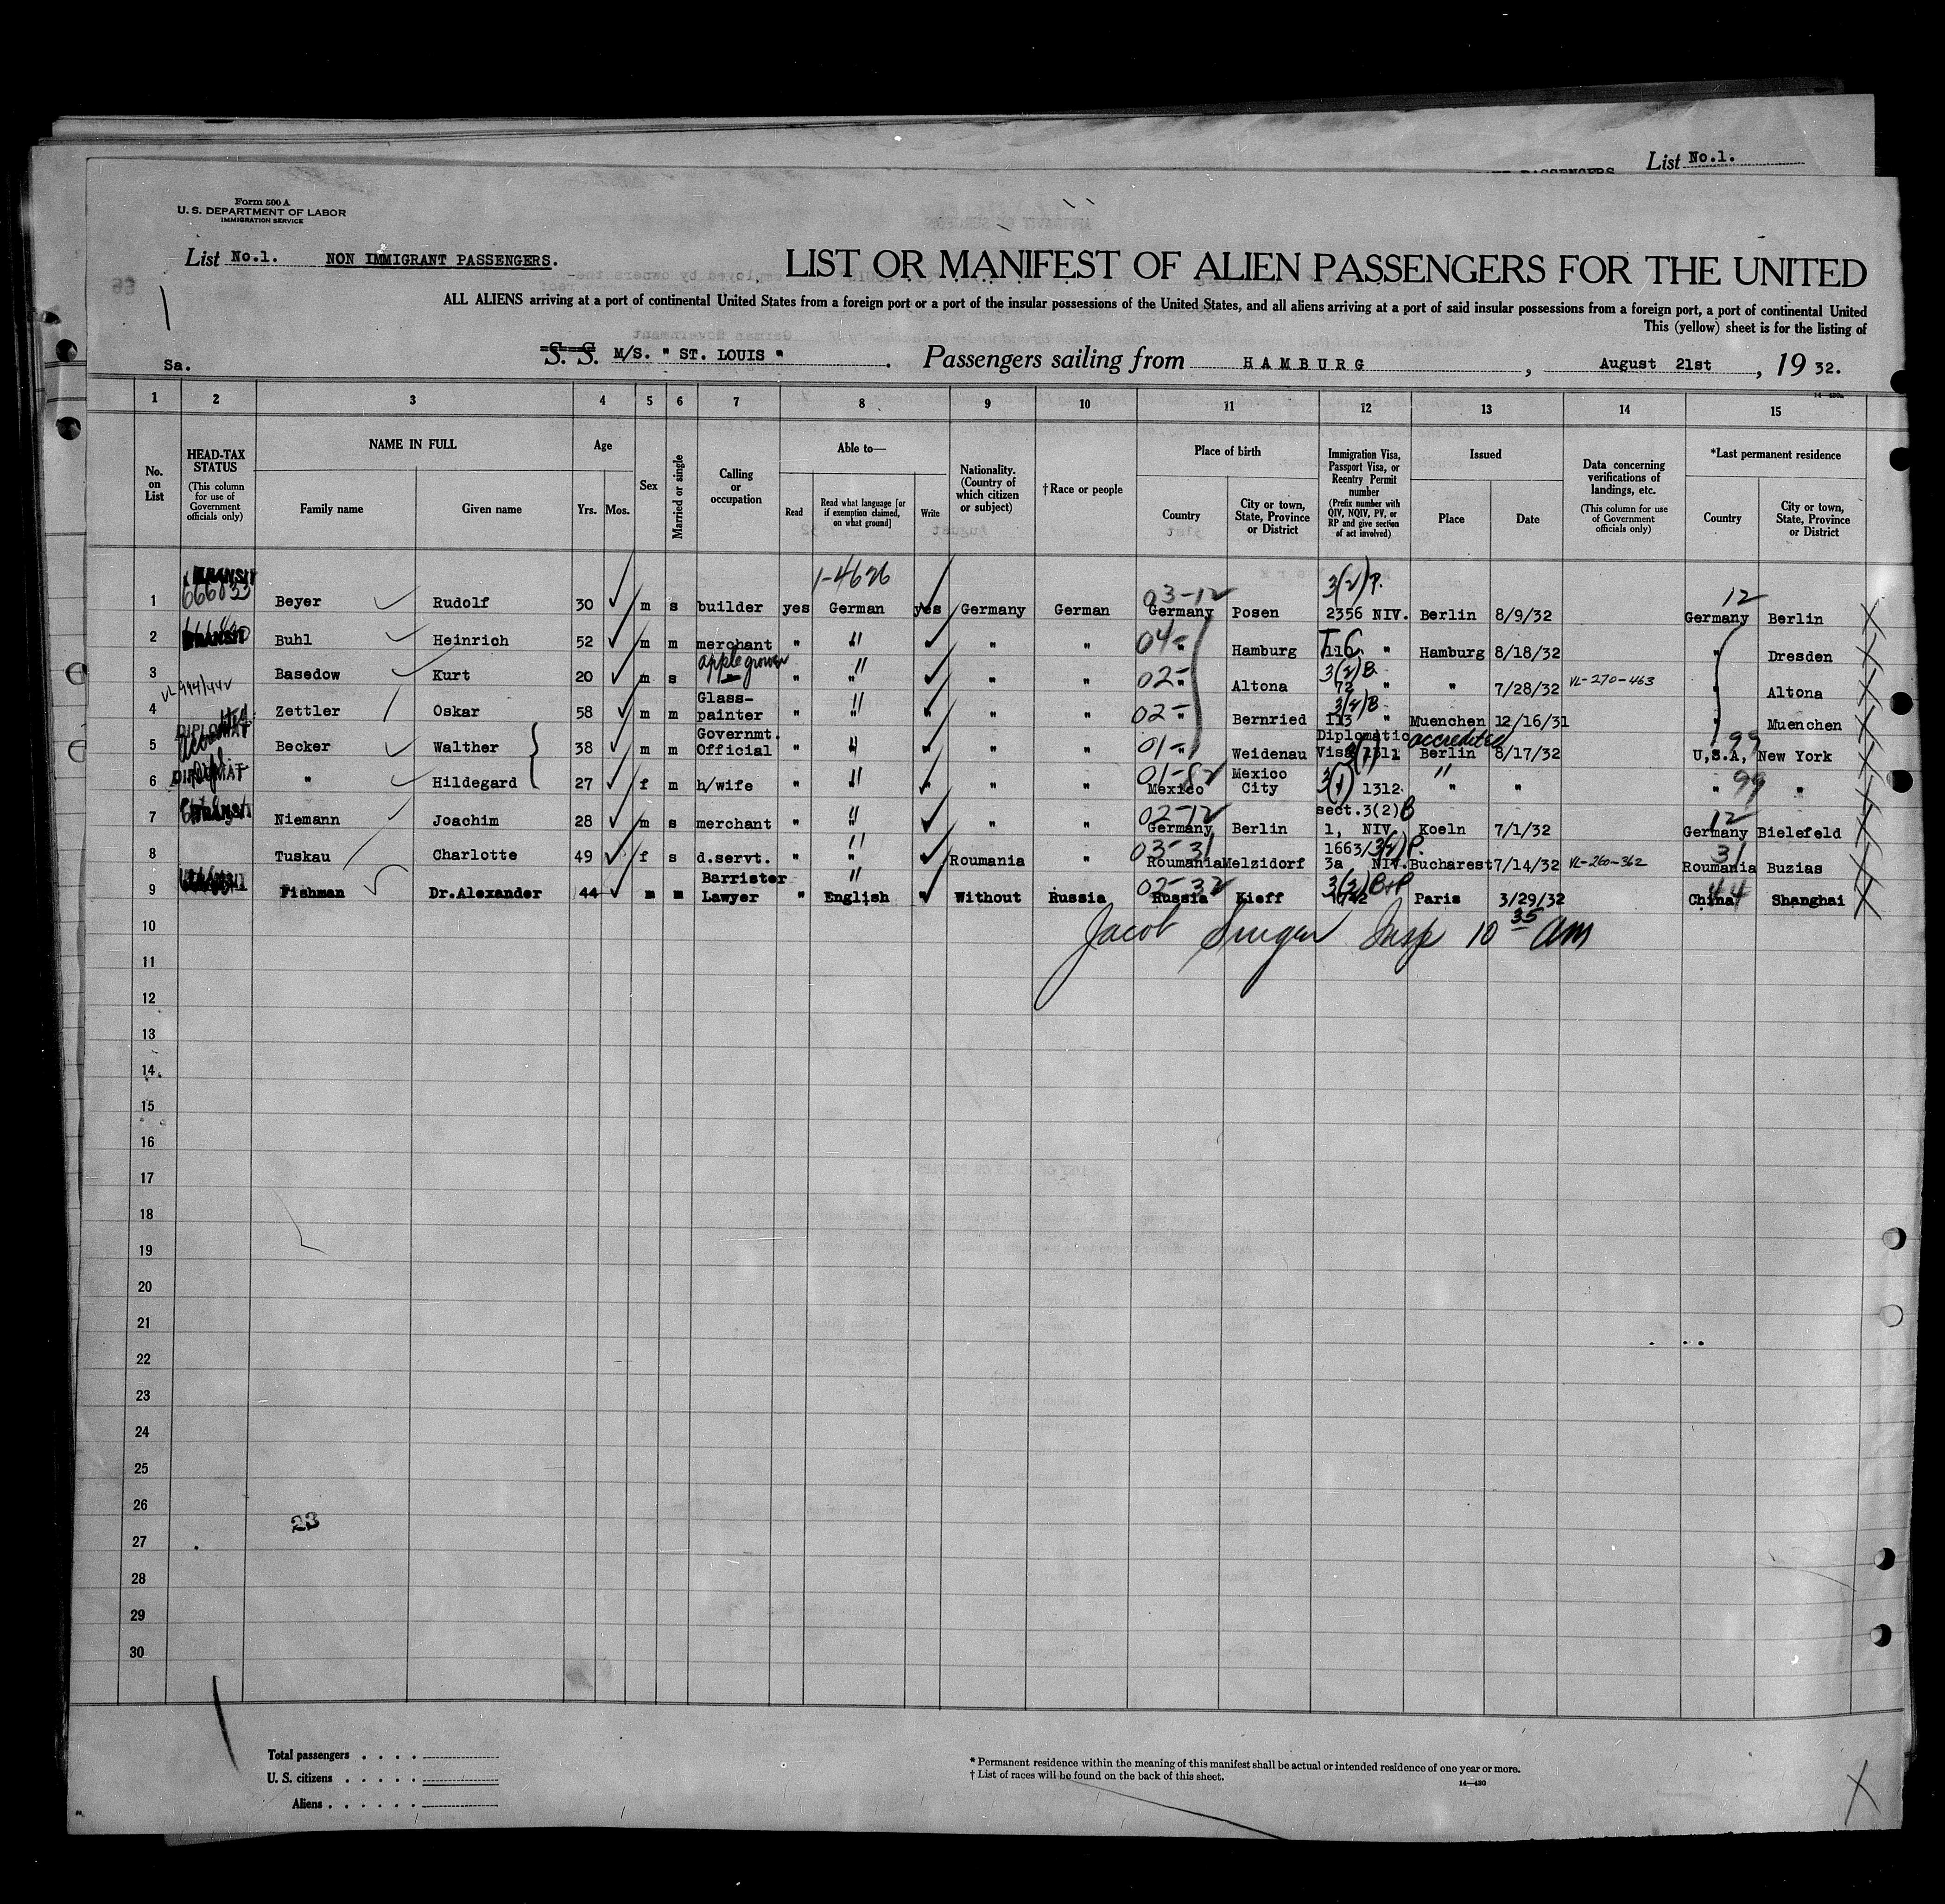 List No.1.
Form 500 A
U. S. DEPARTMENT OF LABOR
IMMIGRATION SERVICE
List No.1. NON IMMIGRANT PASSENGERS.
LIST OR MANIFEST OF ALIEN PASSENGERS FOR THE UNITED
ALL ALIENS arriving at a port of continental United States from a foreign port or a port of the insular possessions of the United States, and all aliens arriving at a port of said insular possessions from a foreign port, a port of continental United
This (yellow) sheet is for the listing of
Sa. S. S. M/S. " ST. LOUIS " . Passengers sailing from HAMBURG , August 21st , 19 32.
1 2 3 4 5 6 7 8 9 10 11 12 13 14 15
No. on List
HEAD-TAX STATUS (This column for use of Government officials only)
NAME IN FULL
Family name Given name
Age
Yrs. Mos.
Sex
Married or single
Calling or occupation
Able to—
Read Read what language [or if exemption claimed, on what ground] Write
Nationality. (Country of which citizen or subject)
†Race or people
Place of birth
Country City or town, State, Province or District
Immigration Visa, Passport Visa, or Reentry Permit number (Prefix number with QIV, NQIV, PV, or RP and give section of act involved)
Issued
Place Date
Data concerning verifications of landings, etc. (This column for use of Government officials only)
*Last permanent residence
Country City or town, State, Province or District
1-4626
1 TRANSIT 666833 Beyer Rudolf 30 m s builder yes German yes Germany German 03-12 Germany Posen 3(2)P. 2356 NIV. Berlin 8/9/32 12 Germany Berlin
2 TRANSIT Buhl Heinrich 52 m m merchant " " " " 04- " Hamburg T.C. 116 " Hamburg 8/18/32 " Dresden
3 Basedow Kurt 20 m s apple grower " " " " " 02- " Altona 3(2)B 72 " " 7/28/32 VL-270-463 " Altona
4 Zettler Oskar 58 m m Glass-painter " " " " 02- " Bernried 3(2)B 113 " Muenchen 12/16/31 " Muenchen
5 DIPLOMAT Becker Walther 38 m m Governmt. Official " " " " 01- " Weidenau Diplomatic Visa 1311 accredited Berlin 8/17/32 99 U.S.A, New York
6 DIPLOMAT " Hildegard 27 f m h/wife " " " " 01-82 Mexico Mexico City 3(1) 1312 " " 99 " "
7 TRANSIT Niemann Joachim 28 m s merchant " " " " 02-12 Germany Berlin sect.3(2)B 1, NIV. Koeln 7/1/32 12 Germany Bielefeld
8 Tuskau Charlotte 49 f s d.servt. " " Roumania " 03-31 Roumania Melzidorf 1663/3(2)P. 3a NIV. Bucharest 7/14/32 VL-260-362 31 Roumania Buzias
9 Fishman Dr.Alexander 44 m m Barrister Lawyer " " English " Without Russia 02-32 Russia Kieff 3(2)B+P 1742 Paris 3/29/32 44 China Shanghai
10 Jacob Singer Insp 10 35 am
11
12
13
14
15
16
17
18
19
20
21
22
23
24
25
26
23
27
28
29
30
Total passengers . . . .
U. S. citizens . . . . .
Aliens . . . . . .
* Permanent residence within the meaning of this manifest shall be actual or intended residence of one year or more.
† List of races will be found on the back of this sheet.
14—430